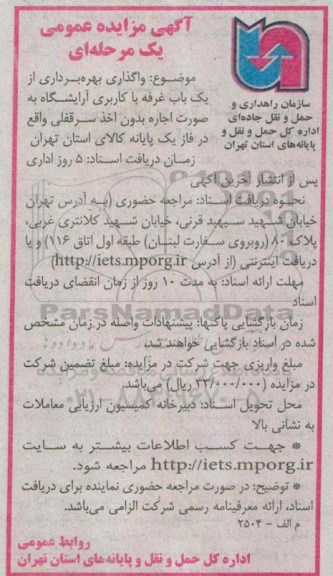 آگهی مزایده عمومی
یک مرحله‌ای
سازمان راهداری و
حمل و نقل جاده‌ای
اداره کل حمل و نقل و
پایانه‌های استان تهران
موضوع: واگذاری بهره‌برداری از
یک باب غرفه با کاربری آرایشگاه به
صورت اجاره بدون اخذ سرقفلی واقع
در فاز یک پایانه کالای استان تهران
زمان دریافت اسناد: ۵ روز اداری
پس از انتشار آخرین آگهی
نحوه دریافت اسناد: مراجعه حضوری (به آدرس تهران
خیابان شهید سپهبد قرنی، خیابان شهید کلانتری غربی،
پلاک ۸۰ (روبروی سفارت لبنان) طبقه اول اتاق ۱۱۶) و یا
دریافت اینترنتی (از آدرس http://iets.mporg.ir)
مهلت ارائه اسناد: به مدت ۱۰ روز از زمان انقضای دریافت
اسناد
زمان بازگشایی پاکتها: پیشنهادات واصله در زمان مشخص
شده در اسناد بازگشایی خواهند شد.
مبلغ واریزی جهت شرکت در مزایده: مبلغ تضمین شرکت
در مزایده (۳۲/۰۰۰/۰۰۰ ریال) می‌باشد.
محل تحویل اسناد: دبیرخانه کمیسیون ارزیابی معاملات
به نشانی بالا
* جهت کسب اطلاعات بیشتر به سایت
http://iets.mporg.ir مراجعه شود.
* توضیح: در صورت مراجعه حضوری نماینده برای دریافت
اسناد، ارائه معرفینامه رسمی شرکت الزامی می‌باشد.
م الف - ۲۵۰۴
روابط عمومی
اداره کل حمل و نقل و پایانه‌های استان تهران
ParsNamadData